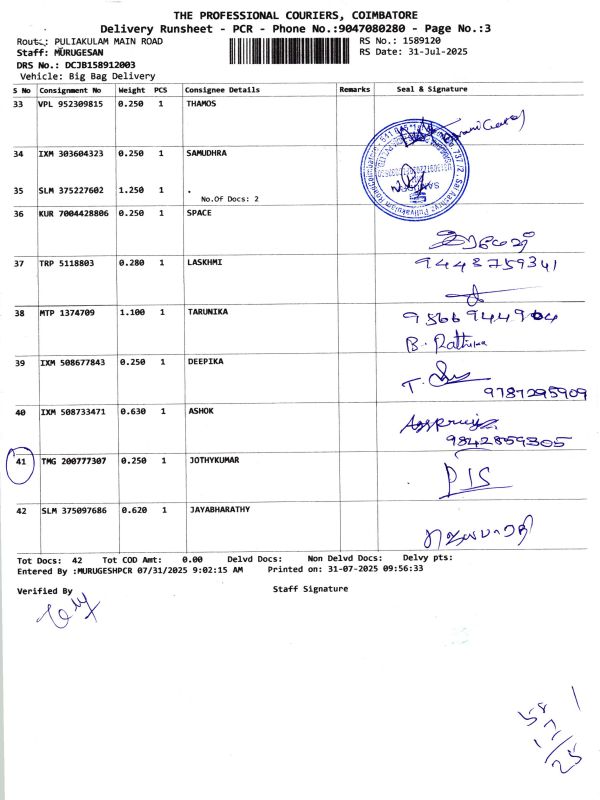 THE PROFESSIONAL COURIERS, COIMBATORE
Delivery Runsheet - PCR - Phone No.:9047080280 - Page No.:3
Route: PULIAKULAM MAIN ROAD
RS No.: 1589120
Staff: MURUGESAN
RS Date: 31-Jul-2025
DRS No.: DCJB158912003
Vehicle: Big Bag Delivery
S No Consignment No Weight PCS Consignee Details Remarks Seal & Signature
33 VPL 952309815 0.250 1 THAMOS
34 IXM 303604323 0.250 1 SAMUDHRA
35 SLM 375227602 1.250 1 .
No.Of Docs: 2
36 KUR 7004428806 0.250 1 SPACE
37 TRP 5118803 0.280 1 LASKHMI
9448759341
38 MTP 1374709 1.100 1 TARUNIKA
9566944904
B. Rathina
39 IXM 508677843 0.250 1 DEEPIKA
9787295909
40 IXM 508733471 0.630 1 ASHOK
9842859305
41 TMG 200777307 0.250 1 JOTHYKUMAR
PIS
42 SLM 375097686 0.620 1 JAYABHARATHY
Tot Docs: 42 Tot COD Amt: 0.00 Delvd Docs: Non Delvd Docs: Delvy pts:
Entered By :MURUGESHPCR 07/31/2025 9:02:15 AM Printed on: 31-07-2025 09:56:33
Verified By
Staff Signature